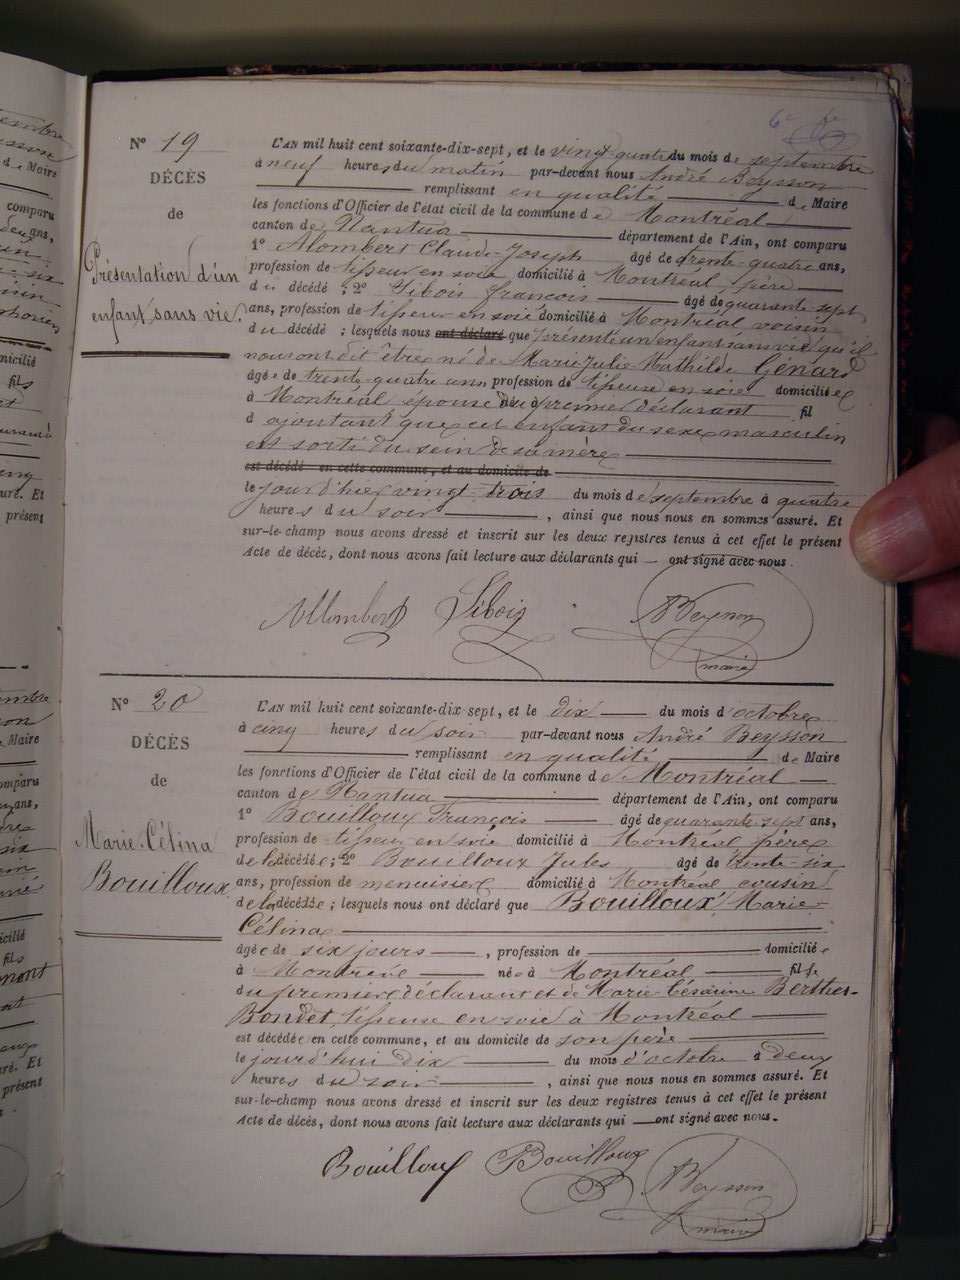 6e fe
N° 19
DÉCÈS
de
Présentation d'un
enfant sans vie.
L'AN mil huit cent soixante-dix-sept, et le vingt-quatre du mois de septembre
à neuf heures du matin par-devant nous André Beysson
remplissant en qualité de Maire
les fonctions d'Officier de l'état civil de la commune de Montréal
canton de Nantua département de l'Ain, ont comparu
1° Alombert Claude-Joseph âgé de trente-quatre ans,
profession de tisseur en soie domicilié à Montréal, père
du décédé ; 2° Sibois françois âgé de quarante-sept
ans, profession de tisseur en soie domicilié à Montréal voisin
du décédé ; lesquels nous ont déclaré que présenté un enfant sans vie qu'il
nous ont dit être né de Marie Julie Mathilde Génard
âgée de trente-quatre ans, profession de tisseuse en soie domiciliée
à Montréal épouse née à premier déclarant fil
d ajoutant que cet enfant du sexe masculin
est sorti du sein de sa mère
est décédé en cette commune, et au domicile de
le jour d'hier vingt-trois du mois de septembre à quatre
heures du soir , ainsi que nous nous en sommes assuré. Et
sur-le-champ nous avons dressé et inscrit sur les deux registres tenus à cet effet le présent
Acte de décès, dont nous avons fait lecture aux déclarants qui ont signé avec nous.
Allombert Sibois Beysson
maire
N° 20
DÉCÈS
de
Marie-Célina
Bouilloux
L'AN mil huit cent soixante-dix-sept, et le dix du mois d'octobre
à cinq heures du soir par-devant nous André Beysson
remplissant en qualité de Maire
les fonctions d'Officier de l'état civil de la commune de Montréal
canton de Nantua département de l'Ain, ont comparu
1° Bouilloux François âgé de quarante-sept ans,
profession de tisseur en soie domicilié à Montréal père
de la décédée ; 2° Bouilloux Jules âgé de trente-six
ans, profession de menuisier domicilié à Montréal cousin
de la décédée ; lesquels nous ont déclaré que Bouilloux, Marie-
Célina
âgée de six jours , profession de domiciliée
à Montréal née à Montréal fille
du premier déclarant et de Marie-Césarine Berthet-
Bondet, tisseuse en soie à Montréal
est décédée en cette commune, et au domicile de son père
le jour d'hui dix du mois d'octobre à deux
heures du soir , ainsi que nous nous en sommes assuré. Et
sur-le-champ nous avons dressé et inscrit sur les deux registres tenus à cet effet le présent
Acte de décès, dont nous avons fait lecture aux déclarants qui ont signé avec nous.
Bouilloux Bouilloux Beysson
maire